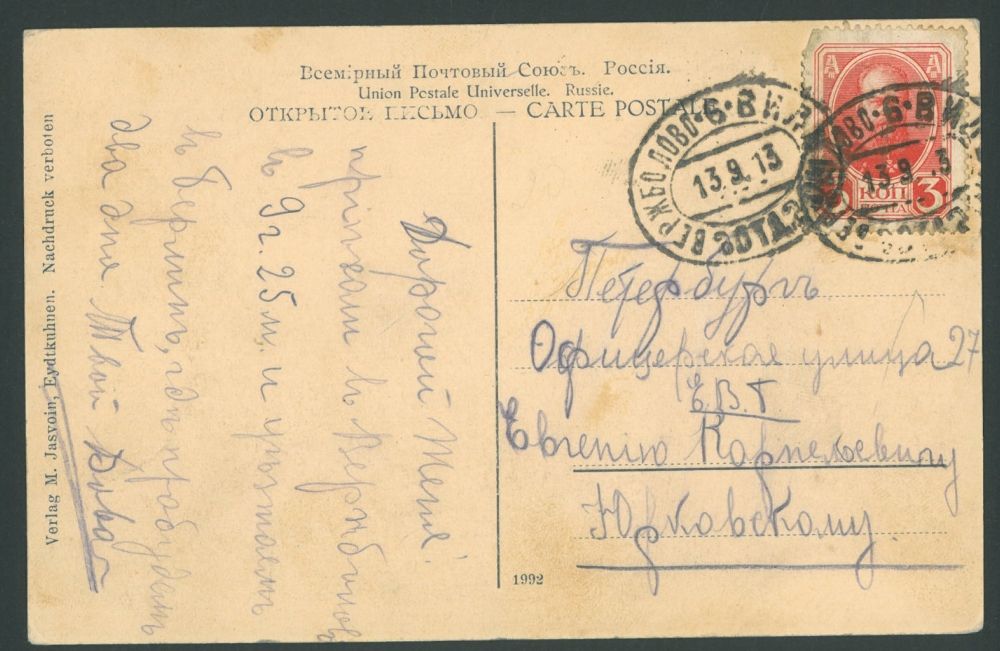 Всемірный Почтовый Союзъ. Россія.
Union Postale Universelle. Russie.
ОТКРЫТОЕ ПИСЬМО — CARTE POSTALE
ВЕРЖБОЛОВО · 6 · ВИЛ
13.9.13
ПОЧТ. ОТД.
3 КОП 3
Петербургъ
Офицерская улица 27
Е.В.Б
Евгенію Корнельевичу
Юрковскому.
Дорогой Женя!
пріѣхали въ Вержболово
въ 9 г. 25 м. и уѣзжаемъ
въ Берлинъ, гдѣ пробудемъ
два дня Твой Вова
Verlag M. Jasvoin, Eydtkuhnen. Nachdruck verboten
1992